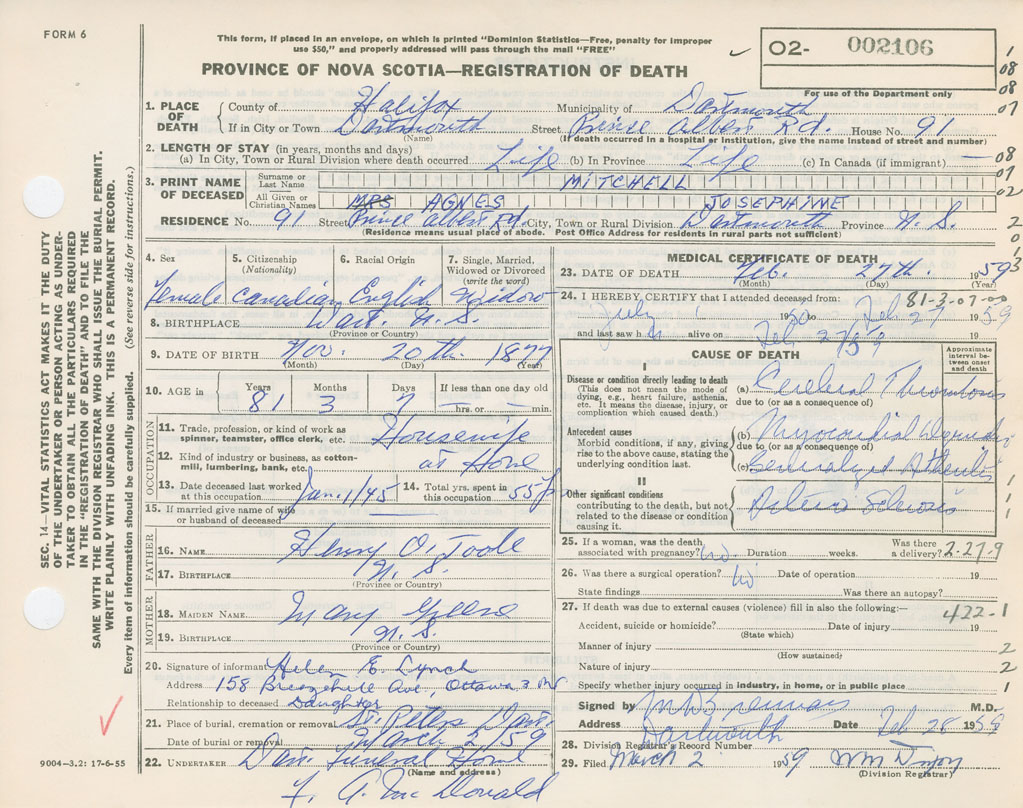 FORM 6
This form, if placed in an envelope, on which is printed "Dominion Statistics—Free, penalty for improper
use $50," and properly addressed will pass through the mail "FREE"
PROVINCE OF NOVA SCOTIA—REGISTRATION OF DEATH
O2- 002106
For use of the Department only
1. PLACE OF DEATH County of Halifax Municipality of Dartmouth
If in City or Town Dartmouth Street Prince Albert Rd. House No. 91
(Name) (If death occurred in a hospital or institution, give the name instead of street and number)
2. LENGTH OF STAY (in years, months and days)
(a) In City, Town or Rural Division where death occurred Life (b) In Province Life (c) In Canada (if immigrant) —
3. PRINT NAME OF DECEASED Surname or Last Name MITCHELL
All Given or Christian Names MRS AGNES JOSEPHINE
RESIDENCE No. 91 Street Prince Albert Rd. City, Town or Rural Division Dartmouth Province N. S.
(Residence means usual place of abode. Post Office Address for residents in rural parts not sufficient)
4. Sex female
5. Citizenship (Nationality) Canadian
6. Racial Origin English
7. Single, Married, Widowed or Divorced (write the word) Widow
8. BIRTHPLACE Dart. N. S.
(Province or Country)
9. DATE OF BIRTH Nov. 20th 1877
(Month) (Day) (Year)
10. AGE in Years 81 Months 3 Days 7 If less than one day old — hrs. or — min.
OCCUPATION
11. Trade, profession, or kind of work as spinner, teamster, office clerk, etc. Housewife
12. Kind of industry or business, as cotton-mill, lumbering, bank, etc. at Home
13. Date deceased last worked at this occupation Jan. 1/45 14. Total yrs. spent in this occupation 55
15. If married give name of wife or husband of deceased
FATHER
16. NAME Henry O'Toole
17. BIRTHPLACE N. S.
(Province or Country)
MOTHER
18. MAIDEN NAME Mary Greene
19. BIRTHPLACE N. S.
(Province or Country)
20. Signature of informant Helen E. Lynch
Address 158 Breezehill Ave, Ottawa 3 Ont
Relationship to deceased Daughter
21. Place of burial, cremation or removal St. Peters Dart.
Date of burial or removal March 2/59
22. UNDERTAKER Dart Funeral Home
(Name and address)
F. A. McDonald
MEDICAL CERTIFICATE OF DEATH
23. DATE OF DEATH Feb. 27th. 1959
(Month) (Day) (Year)
24. I HEREBY CERTIFY that I attended deceased from: 81-3-07-00
July 1 1950 to Feb 27 1959
and last saw h alive on Feb 27/59 19
CAUSE OF DEATH
Approximate interval between onset and death
I
Disease or condition directly leading to death
(This does not mean the mode of dying, e.g., heart failure, asthenia, etc. It means the disease, injury, or complication which caused death.)
(a) Cerebral Thrombosis
due to (or as a consequence of)
Antecedent causes
Morbid conditions, if any, giving rise to the above cause, stating the underlying condition last.
(b) Myocardial
due to (or as a consequence of)
(c) Generalized
II
Other significant conditions
contributing to the death, but not related to the disease or condition causing it.
Arterio Sclerosis
25. If a woman, was the death associated with pregnancy? No. Duration weeks. Was there a delivery? 2-27-9
26. Was there a surgical operation? No Date of operation 19
State findings Was there an autopsy?
27. If death was due to external causes (violence) fill in also the following:— 422-1
Accident, suicide or homicide? Date of injury 19
(State which)
Manner of injury 2
(How sustained)
Nature of injury 2
Specify whether injury occurred in industry, in home, or in public place 1
Signed by M.D.
Address Dartmouth Date Feb 28 1959
28. Division Registrar's Record Number
29. Filed March 2 1959
(Division Registrar)
SEC. 14—VITAL STATISTICS ACT MAKES IT THE DUTY
OF THE UNDERTAKER OR PERSON ACTING AS UNDER-
TAKER TO OBTAIN ALL THE PARTICULARS REQUIRED
IN THE "REGISTRATION OF DEATH" AND TO FILE THE
SAME WITH THE DIVISION REGISTRAR WHO SHALL ISSUE THE BURIAL PERMIT.
WRITE PLAINLY WITH UNFADING INK. THIS IS A PERMANENT RECORD.
Every item of information should be carefully supplied. (See reverse side for instructions.)
9004-3.2: 17-6-55
1
08
08
07
08
07
02
2
0
1
3
1
1
1